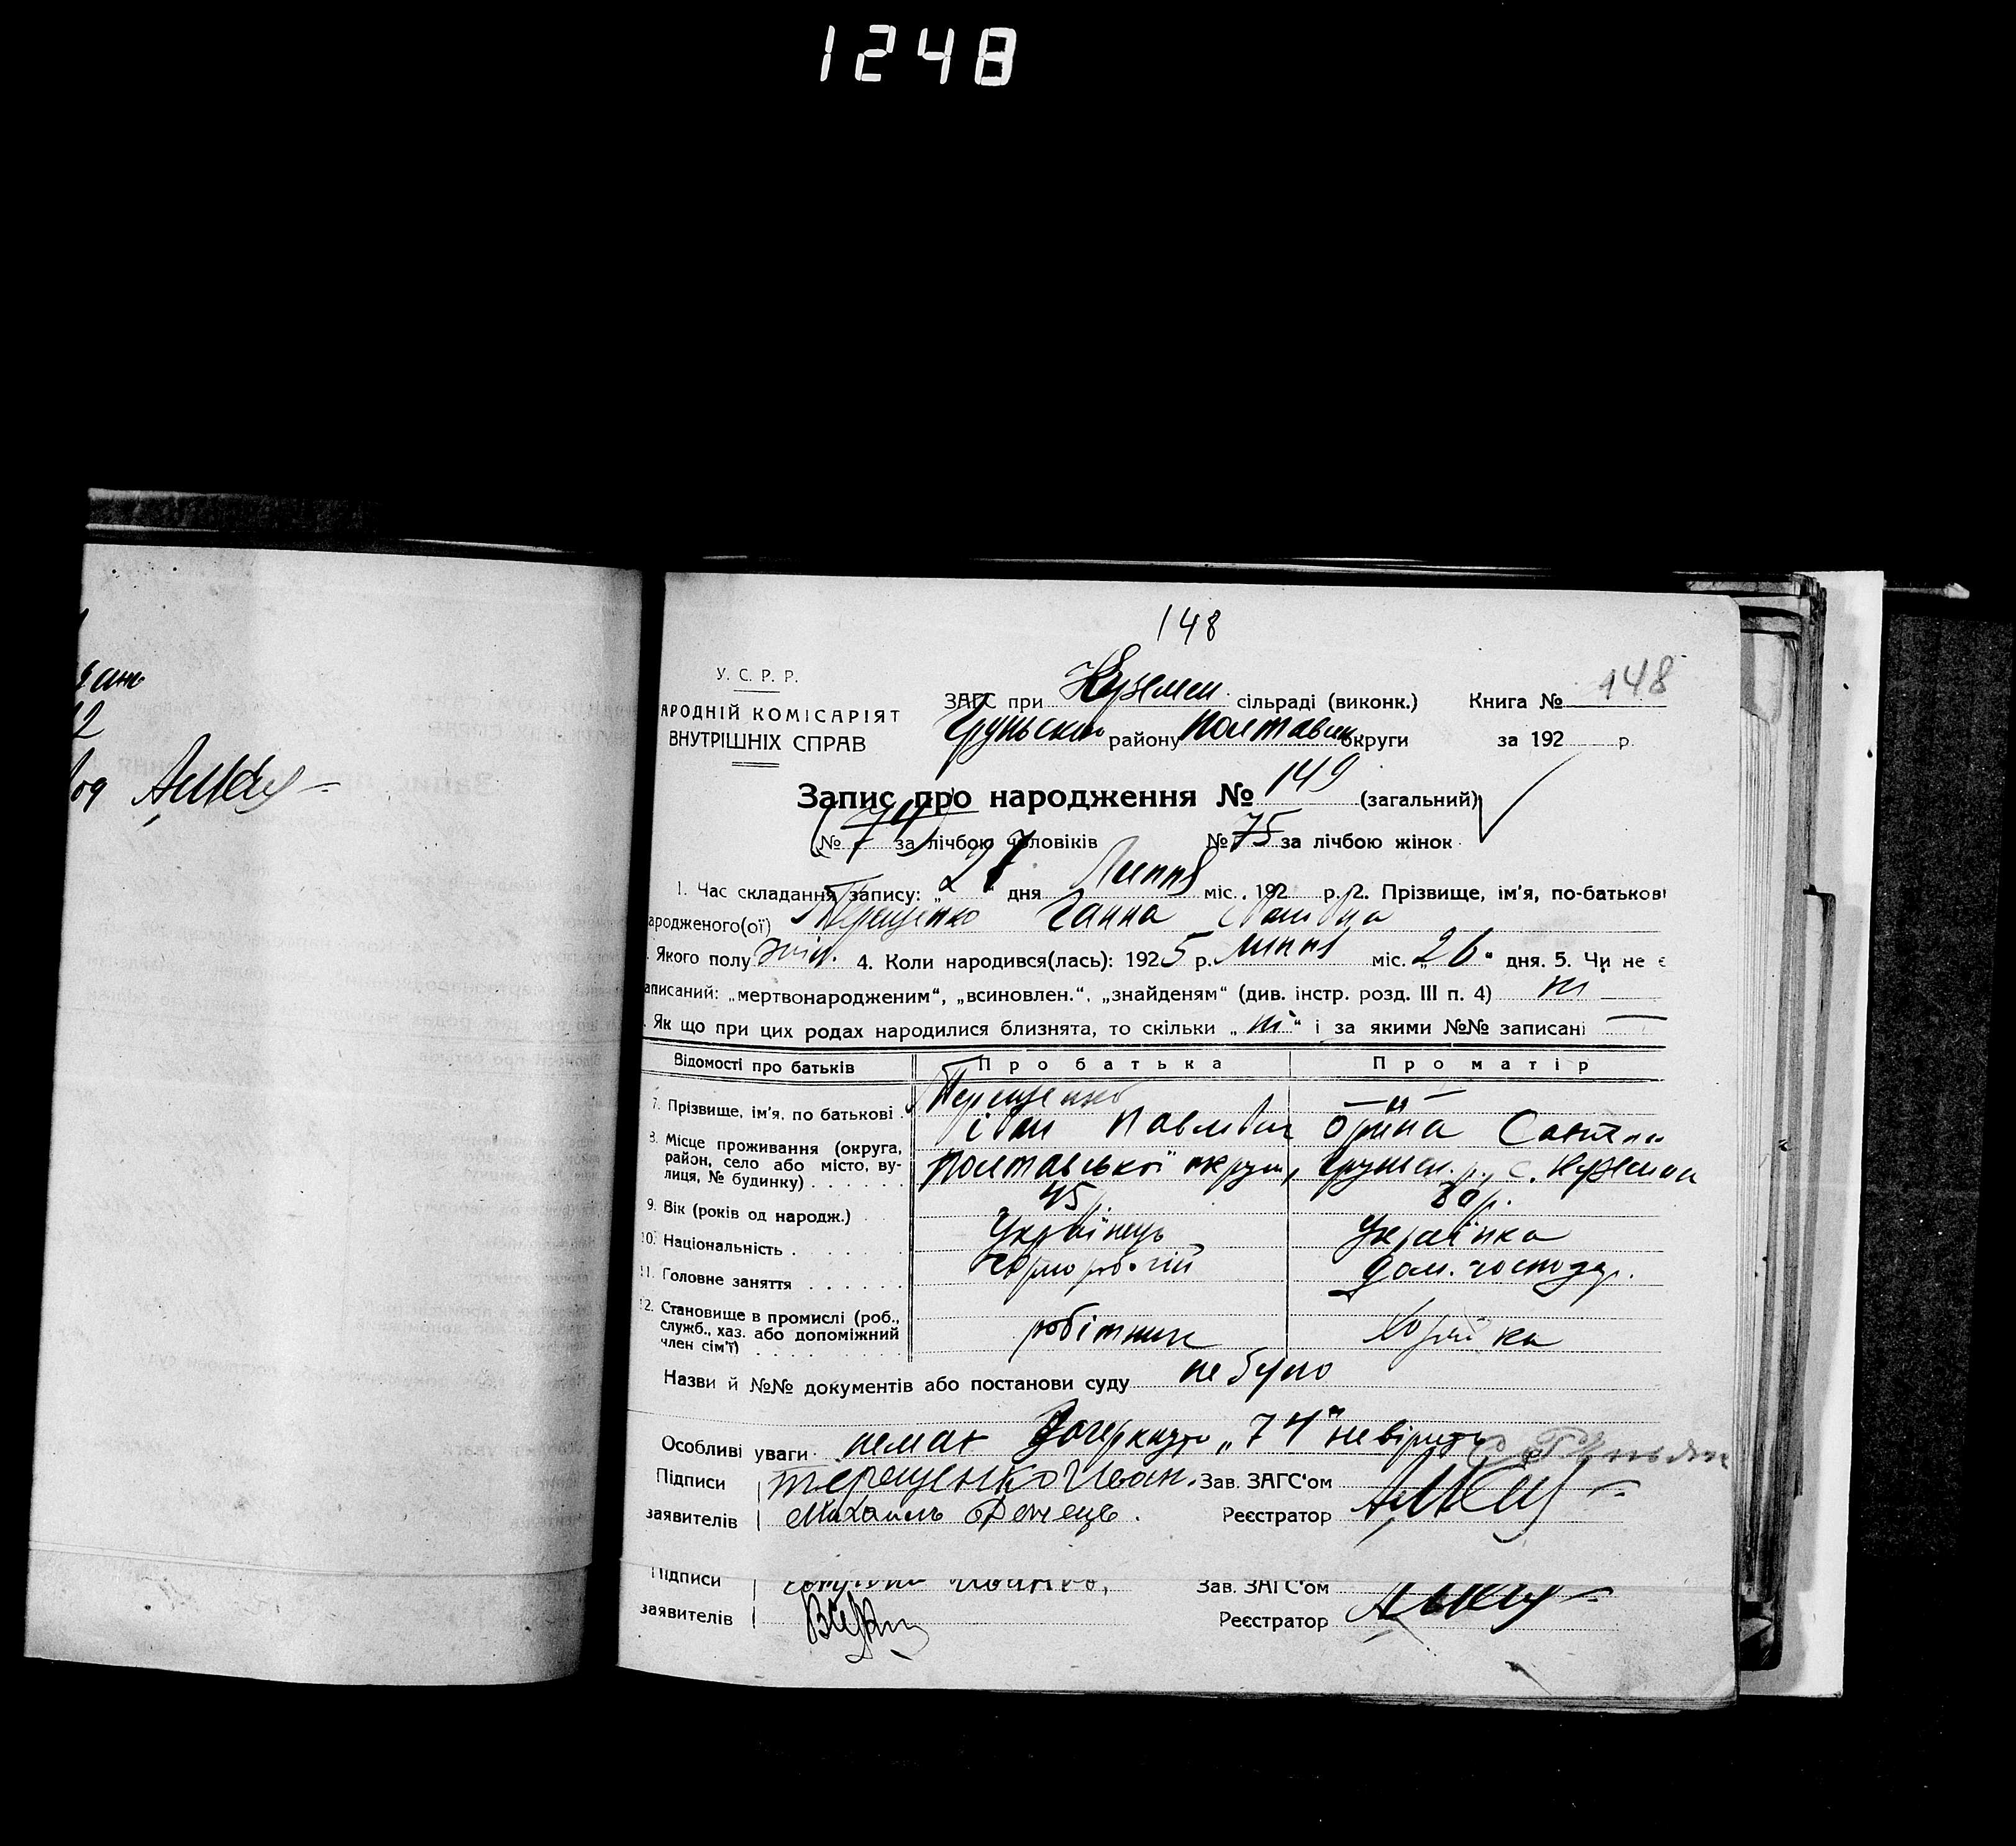 1248
148
У. С. Р. Р.
АРОДНІЙ КОМІСАРІЯТ
ВНУТРІШНІХ СПРАВ
ЗАГС при Куземен. сільраді (виконк.) Книга № 148
Груньськ. району Полтавськ. округи за 192 р.
Запис про народження № 149 (загальний)
(№ 74) за лічбою чоловіків № 75 за лічбою жінок
1. Час складання запису: „27" дня Липня міс. 192 р. 2. Прізвище, ім'я, по-батькові
ародженого(ої) Терещенко Ганна Іванівна
Якого полу жін. 4. Коли народився(лась): 1925 р. Липня міс. „26" дня. 5. Чи не є
аписаний: „мертвонародженим", „всиновлен.", „знайденям" (див. інстр. розд. III п. 4) ні
Як що при цих родах народилися близнята, то скільки „ні" і за якими №№ записані —
Відомості про батьків Про батька Про матір
7. Прізвище, ім'я, по батькові Терещенко — „ —
Іван Павлович Орина
8. Місце проживання (округа, район, село або місто, ву-
лиця, № будинку) Полтавської округи, Груньськ. р., с. Куземен
9. Вік (років од народж.) 45
10. Національність Українець Українка
11. Головне заняття Чорноробочий Дом. господар.
12. Становище в промислі (роб.,
служб., хаз. або допоміжний
член сім'ї) робітник Хазяйка
Назви й №№ документів або постанови суду не було
Особливі уваги немає „74" не вірить
Підписи Терещенко Иван. Зав. ЗАГС'ом
заявителів Михаиль Донець. Реєстратор
Підписи Зав. ЗАГС'ом
заявителів Реєстратор